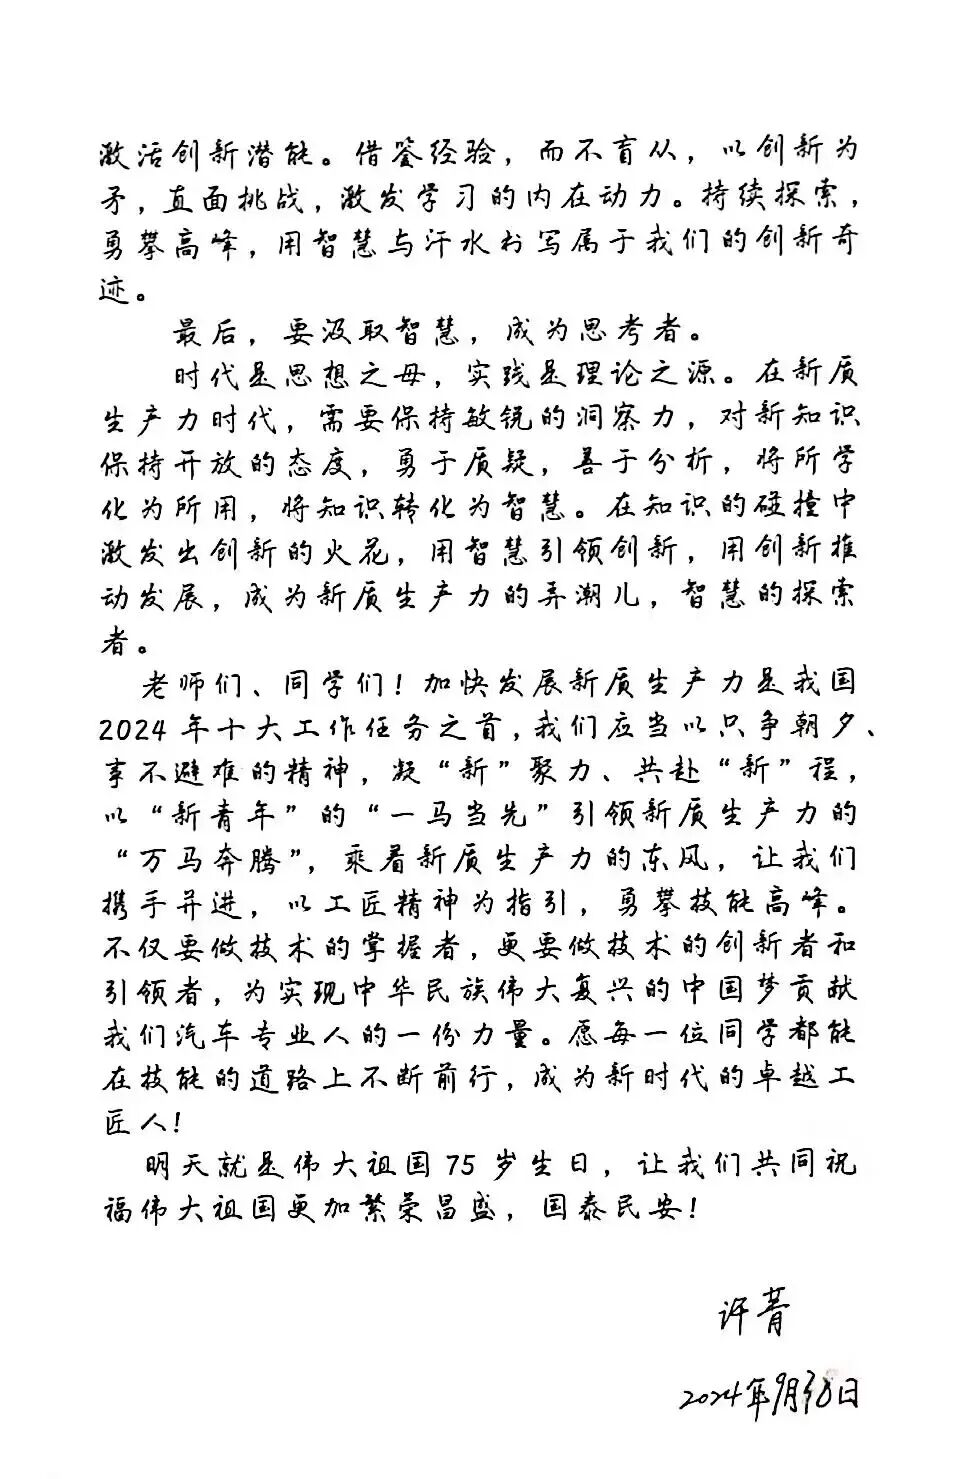 激活创新潜能。借鉴经验，而不盲从，以创新为
矛，直面挑战，激发学习的内在动力。持续探索，
勇攀高峰，用智慧与汗水书写属于我们的创新奇
迹。
最后，要汲取智慧，成为思考者。
时代是思想之母，实践是理论之源。在新质
生产力时代，需要保持敏锐的洞察力，对新知识
保持开放的态度，勇于质疑，善于分析，将所学
化为所用，将知识转化为智慧。在知识的碰撞中
激发出创新的火花，用智慧引领创新，用创新推
动发展，成为新质生产力的弄潮儿，智慧的探索
者。
老师们、同学们！加快发展新质生产力是我国
2024年十大工作任务之首，我们应当以只争朝夕、
事不避难的精神，凝“新”聚力、共赴“新”程，
以“新青年”的“一马当先”引领新质生产力的
“万马奔腾”，乘着新质生产力的东风，让我们
携手并进，以工匠精神为指引，勇攀技能高峰。
不仅要做技术的掌握者，更要做技术的创新者和
引领者，为实现中华民族伟大复兴的中国梦贡献
我们汽车专业人的一份力量。愿每一位同学都能
在技能的道路上不断前行，成为新时代的卓越工
匠人！
明天就是伟大祖国75岁生日，让我们共同祝
福伟大祖国更加繁荣昌盛，国泰民安！
许菁
2024年9月30日